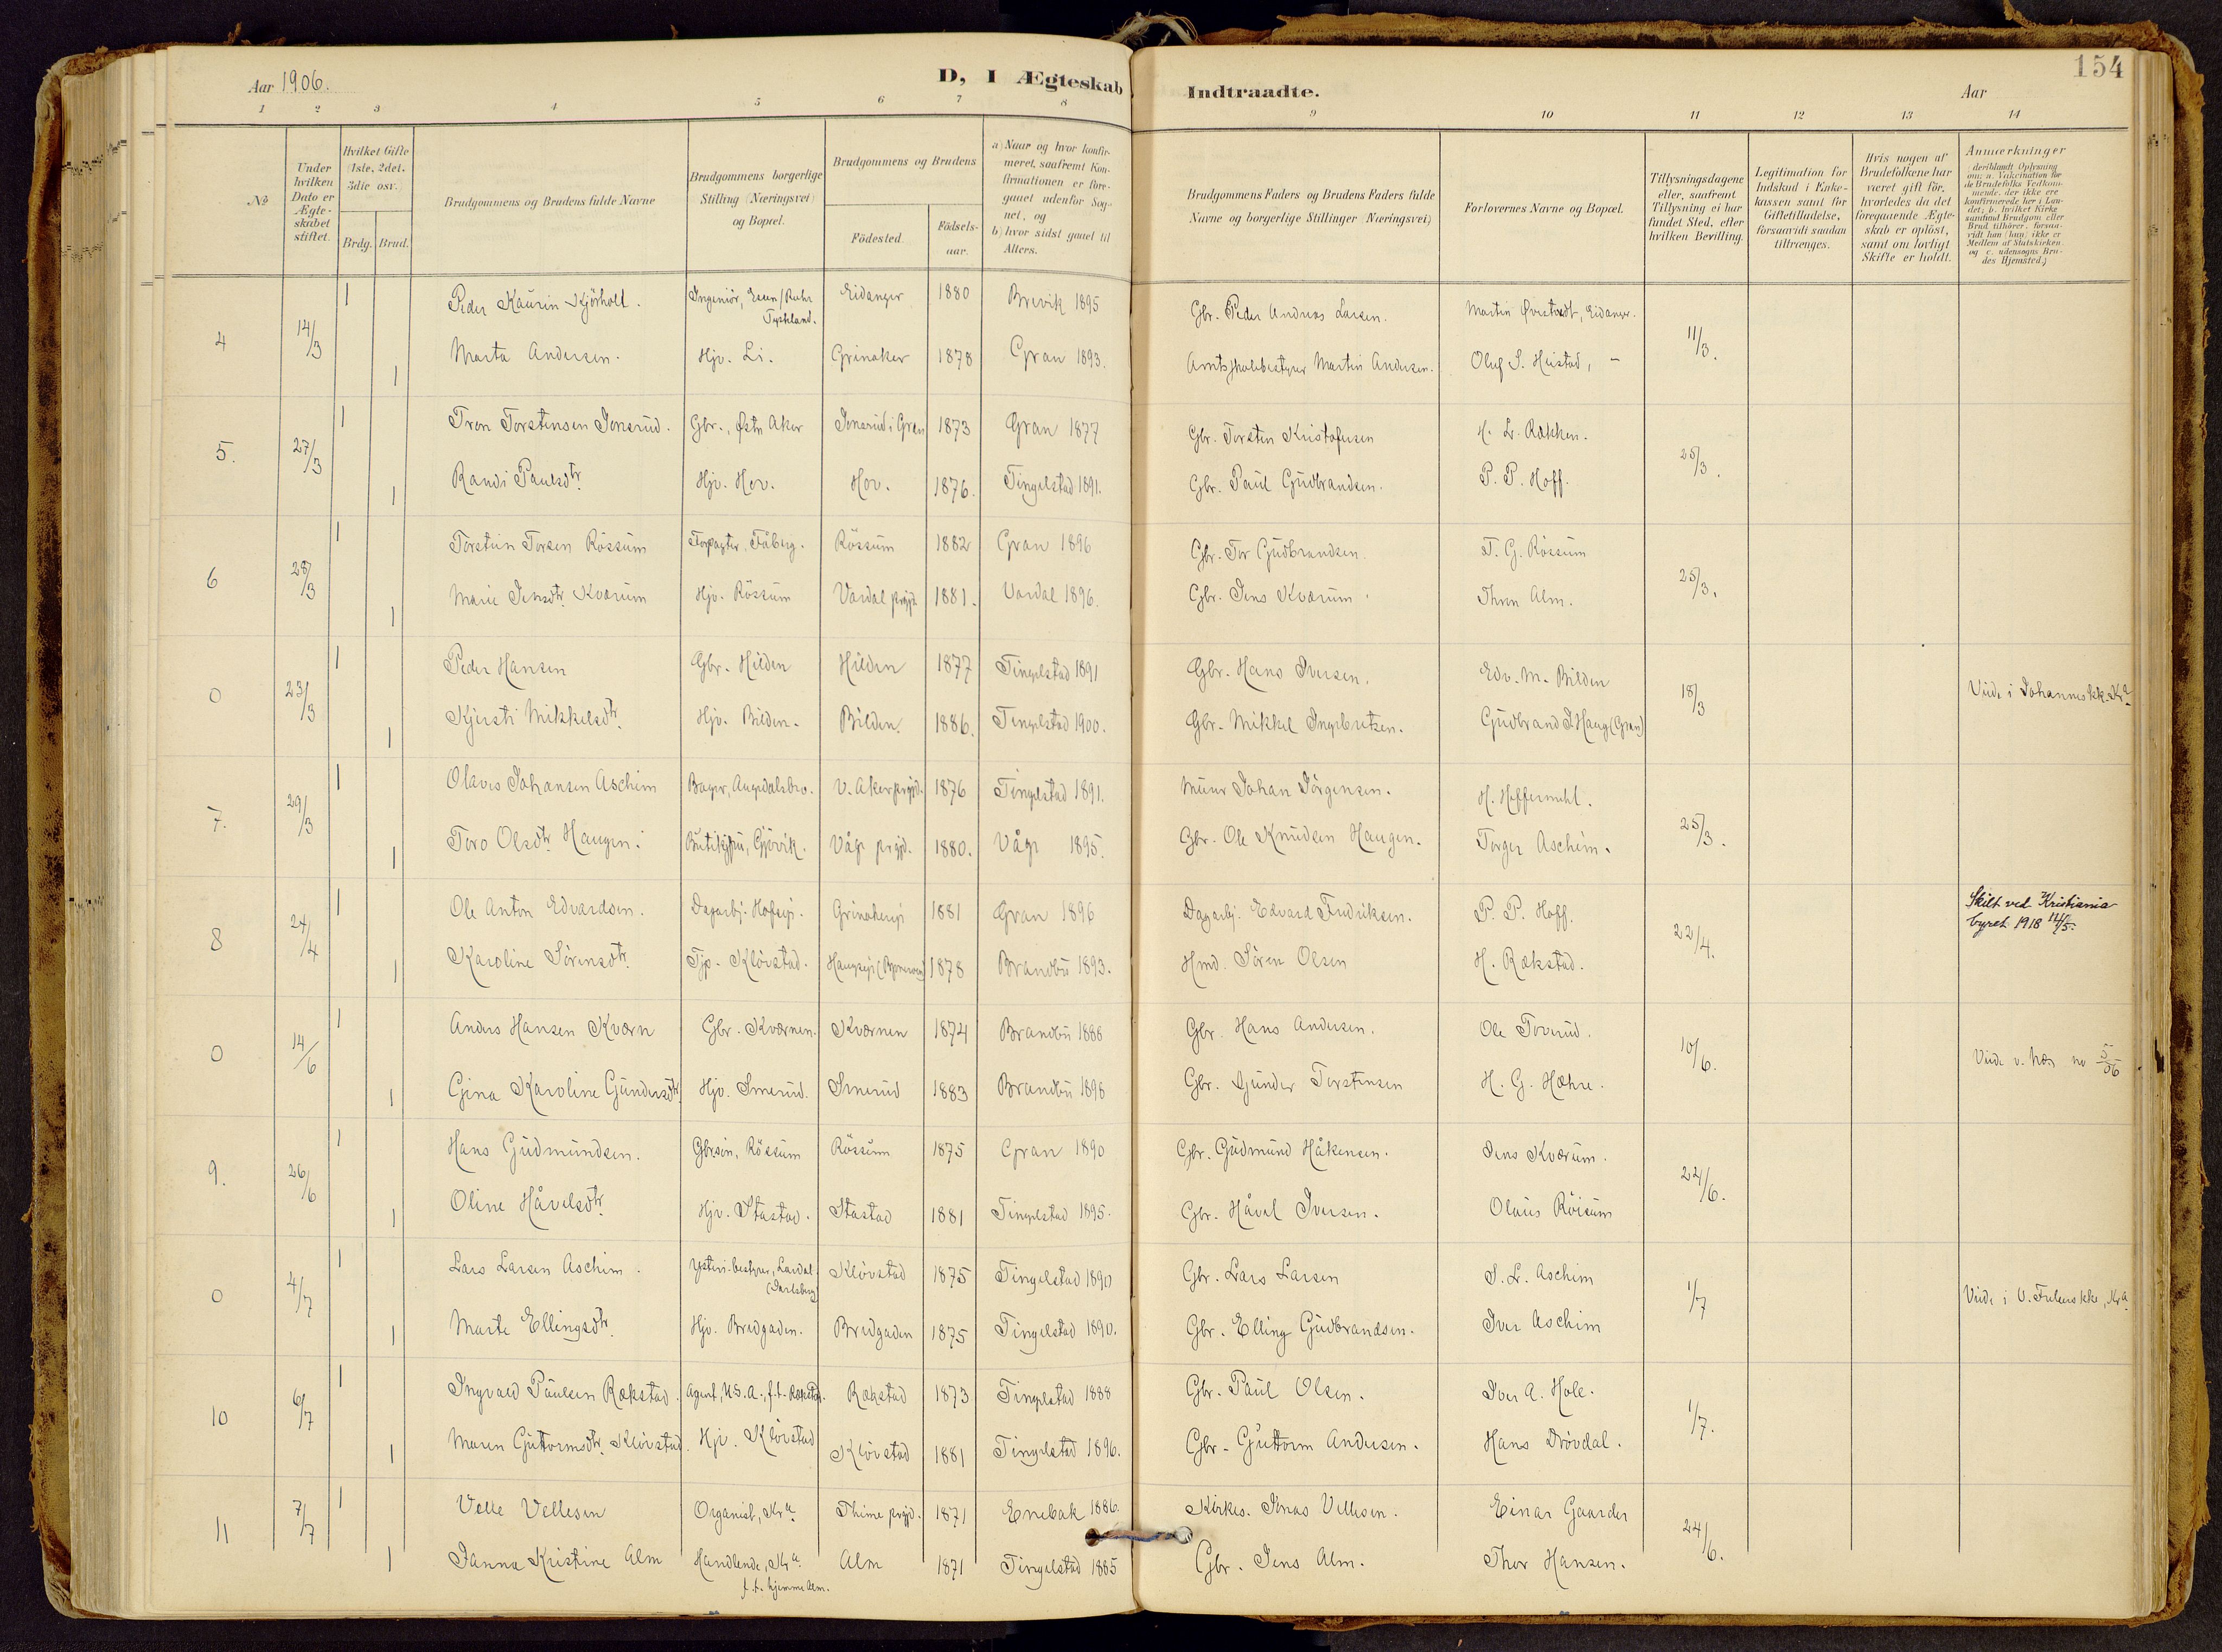 154
Aar 1906. D, I Ægteskab Indtraadte. Aar
1 2 3 4 5 6 7 8 9 10 11 12 13 14
№
Under hvilken Dato er Ægteskabet stiftet.
Hvilket Gifte (1ste, 2det, 3die osv.)
Brdg. Brud.
Brudgommens og Brudens fulde Navne
Brudgommens borgerlige Stilling (Næringsvei) og Bopæl.
Brudgommens og Brudens
Fødested. Fødselsaar.
a) Naar og hvor konfirmeret, saafremt Konfirmationen er foregaaet udenfor Sognet, og
b) hvor sidst gaaet til Alters.
Brudgommens Faders og Brudens Faders fulde Navne og borgerlige Stillinger (Næringsvei)
Forlovernes Navne og Bopæl.
Tillysningsdagene eller, saafremt Tillysning ei har fundet Sted, efter hvilken Bevilling.
Legitimation for Indskud i Enkekassen samt for Giftetilladelse, forsaavidt saadan tiltrænges.
Hvis nogen af Brudefolkene har været gift før, hvorledes da det foregaaende Ægteskab er opløst, samt om lovligt Skifte er holdt.
Anmærkninger
(deriblandt Oplysning om: a. Vakcination for de Brudefolks Vedkommende, der ikke ere konfirmerede her i Landet; b. hvilket Kirkesamfund Brudgom eller Brud tilhører, forsaavidt han (hun) ikke er Medlem af Statskirken og c. udensogns Brudes Hjemsted.)
4 14/3 1 Peder Kaurin Kjørholt. Ingeniør, Essen/Ruhr Tyskland. Eidanger 1880 Brevik 1895 Gbr. Peder Andreas Larsen. Martin Øvrstvedt, Eidanger. 11/3.
1 Marta Andersen. Hjv. Li. Grinaker 1878 Gran 1893. Amtsskolebestyrer Martin Andersen. Oluf S. Heistad, -
5. 27/3 1 Tron Torstensen Jonsrud. Gbr., Østn Aker Jonsrud i Gran 1873 Gran 1877 Gbr. Torsten Kristofersen H. L. Rækken. 25/3.
1 Randi Paulsdtr. Hjv. Hov. Hov. 1876. Tingelstad 1891. Gbr. Paul Gudbrandsen. P. P. Hoff.
6 28/3 1 Torstein Torsen Røssum Forpagter, Fåberg. Røssum 1882 Gran 1896 Gbr. Tor Gudbrandsen. T. G. Røssum 25/3.
1 Marie Jensdtr. Kværum Hjv. Røssum Vardal prgjd. 1881. Vardal 1896. Gbr. Jens Kværum. Thron Alm.
0 23/3 1 Peder Hansen Gbr. Hilden Hilden 1877 Tingelstad 1891 Gbr. Hans Iversen. Edv. M. Bilden 18/3 Viede i Johannes kk. Kra.
1 Kjersti Mikkelsdtr. Hjv. Bilden. Bilden. 1886. Tingelstad 1900. Gbr. Mikkel Ingebretsen. Gudbrand J. Haug (Gran)
7. 29/3 1 Olaves Johansen Aschim Bager, Augedalsbro. V. Aker prgjd. 1876 Tingelstad 1891. Murer Johan Jörgensen. H. Hoffermehl. 25/3.
1 Toro Olsdtr. Haugen. Gjøvik. Vågå prgjd. 1880. Vågå 1895. Gbr. Ole Knudsen Haugen. Torger Aschim.
8 24/4 1 Ole Anton Edvardsen. Dagarbj. Hofseje. Grinakereje 1881 Gran 1896 Dagarbj. Edvard Fredriksen. P. P. Hoff. 22/4. Skilt ved Kristiania byret 1918 14/5.
1 Karoline Sörensdtr. Tjp. Klövstad. 1878 Brandbu 1893. Hmd. Sören Olsen H. Rækstad.
0 14/6 1 Anders Hansen Kværn Gbr. Kværnen. Kværnen 1874 Brandbu 1888 Gbr. Hans Andersen. Ole Toverud. 10/6. Viede v. Næs no 5/06
1 Gina Karoline Gundersdtr. Hjv. Smerud. Smerud 1883 Brandbu 1898 Gbr. Gunder Torstensen H. G. Hæhre.
9. 26/6 1 Hans Gudmundsen. Gbrsøn, Røssum Røssum 1875 Gran 1890 Gbr. Gudmund Håkensen. Jens Kværum. 24/6.
1 Oline Håvelsdtr. Hjv. Stastad. Stastad 1881 Tingelstad 1895. Gbr. Håvel Iversen. Olaus Röisum
0 4/7 1 Lars Larsen Aschim. Ysteri-bestyrer, Lardal (Jarlsberg) Klövstad 1875 Tingelstad 1890 Gbr. Lars Larsen S. L. Aschim 1/7 Viede i V. Frelsers kke, Kra.
1 Marte Ellingsdtr. Hjv. Bredgaden. Bredgaden 1875 Tingelstad 1890. Gbr. Elling Gudbrandsen. Iver Aschim
10 6/7 1 Ingvald Paulsen Rækstad. Agent, U.S.A., f.t. Rækstad. Rækstad 1873 Tingelstad 1888 Gbr. Paul Olsen. Iver A. Hole. 1/7.
1 Maren Guttormsdtr. Klövstad. Hjv. Klövstad Klövstad 1881 Tingelstad 1896. Gbr. Guttorm Andersen. Hans Drövdal.
11 7/7 1 Velle Vellesen Organist, Kra. Thime prgjd. 1871 Enebak 1886. Kirkes. Jonas Vellesen. Einar Gaarder 24/6.
1 Janna Kristine Alm Handlende, Kra. f.t. hjemme Alm. Alm 1871 Tingelstad 1885 Gbr. Jens Alm. Thor Hansen.